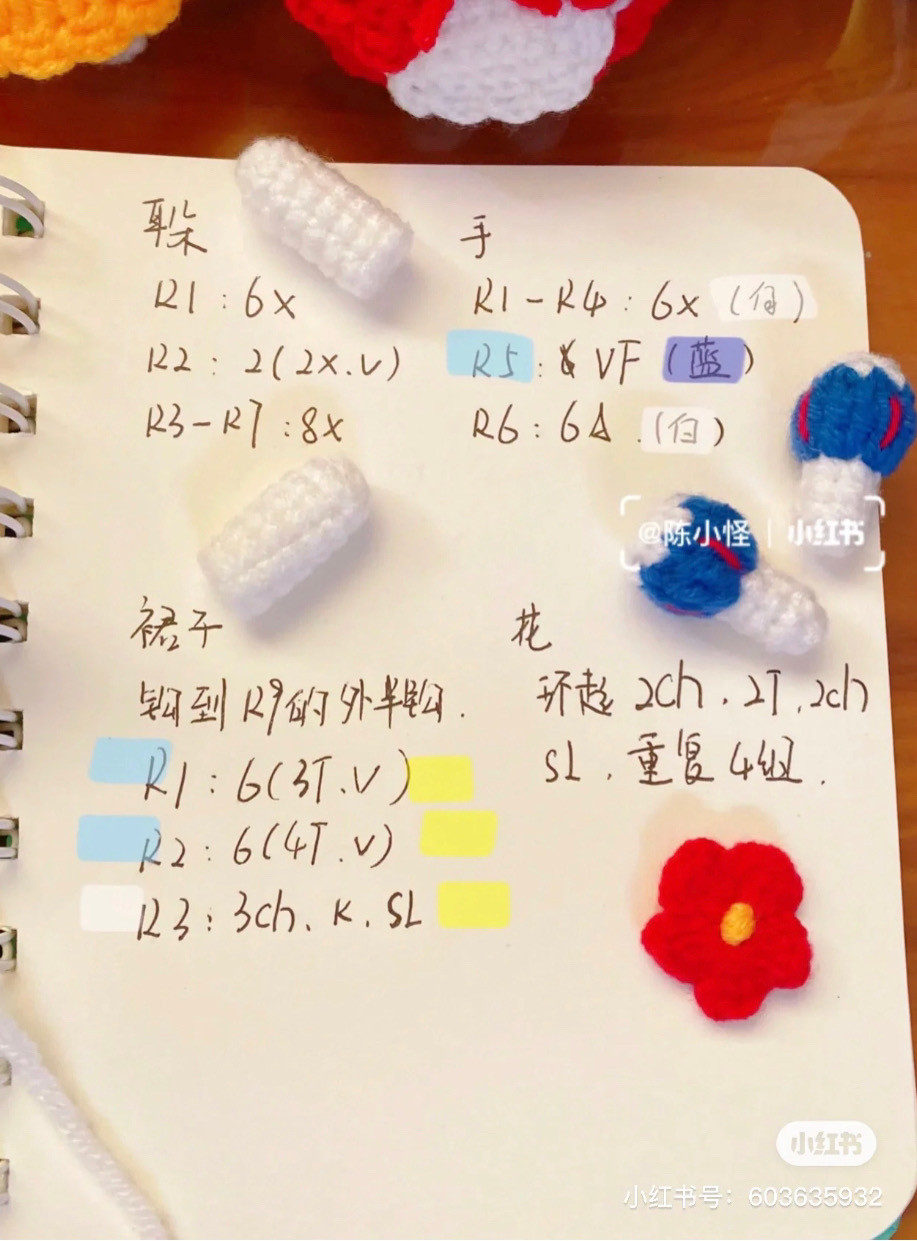 耳朵
R1:6x
R2:2(2x.v)
R3-R7:8x
手
R1-R4:6x(白)
R5:VF(蓝)
R6:6A.(白)
@陈小怪|小红书
裙子
钩到R9的外半钩.
R1:6(3T.V)
R2:6(4T.V)
R3:3ch.K.SL
花
环起2ch.2T.2ch
SL.重复4组.
小红书
小红书号：603635932